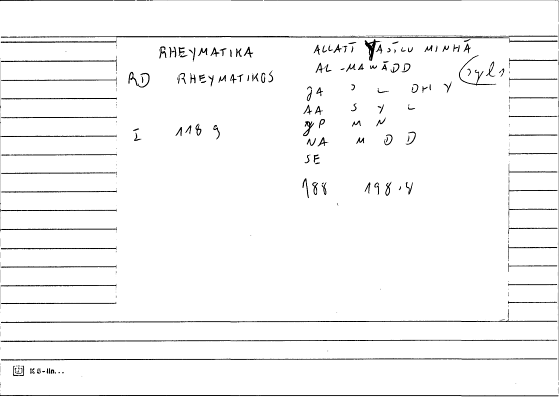 RHEYMATIKA
RD RHEYMATIKOS
I 118 9
ALLATĪ YASĪLU MINHĀ
AL-MAWĀDD
(syl
AA S Y L
M N
NA M D D
SE
188 198.8